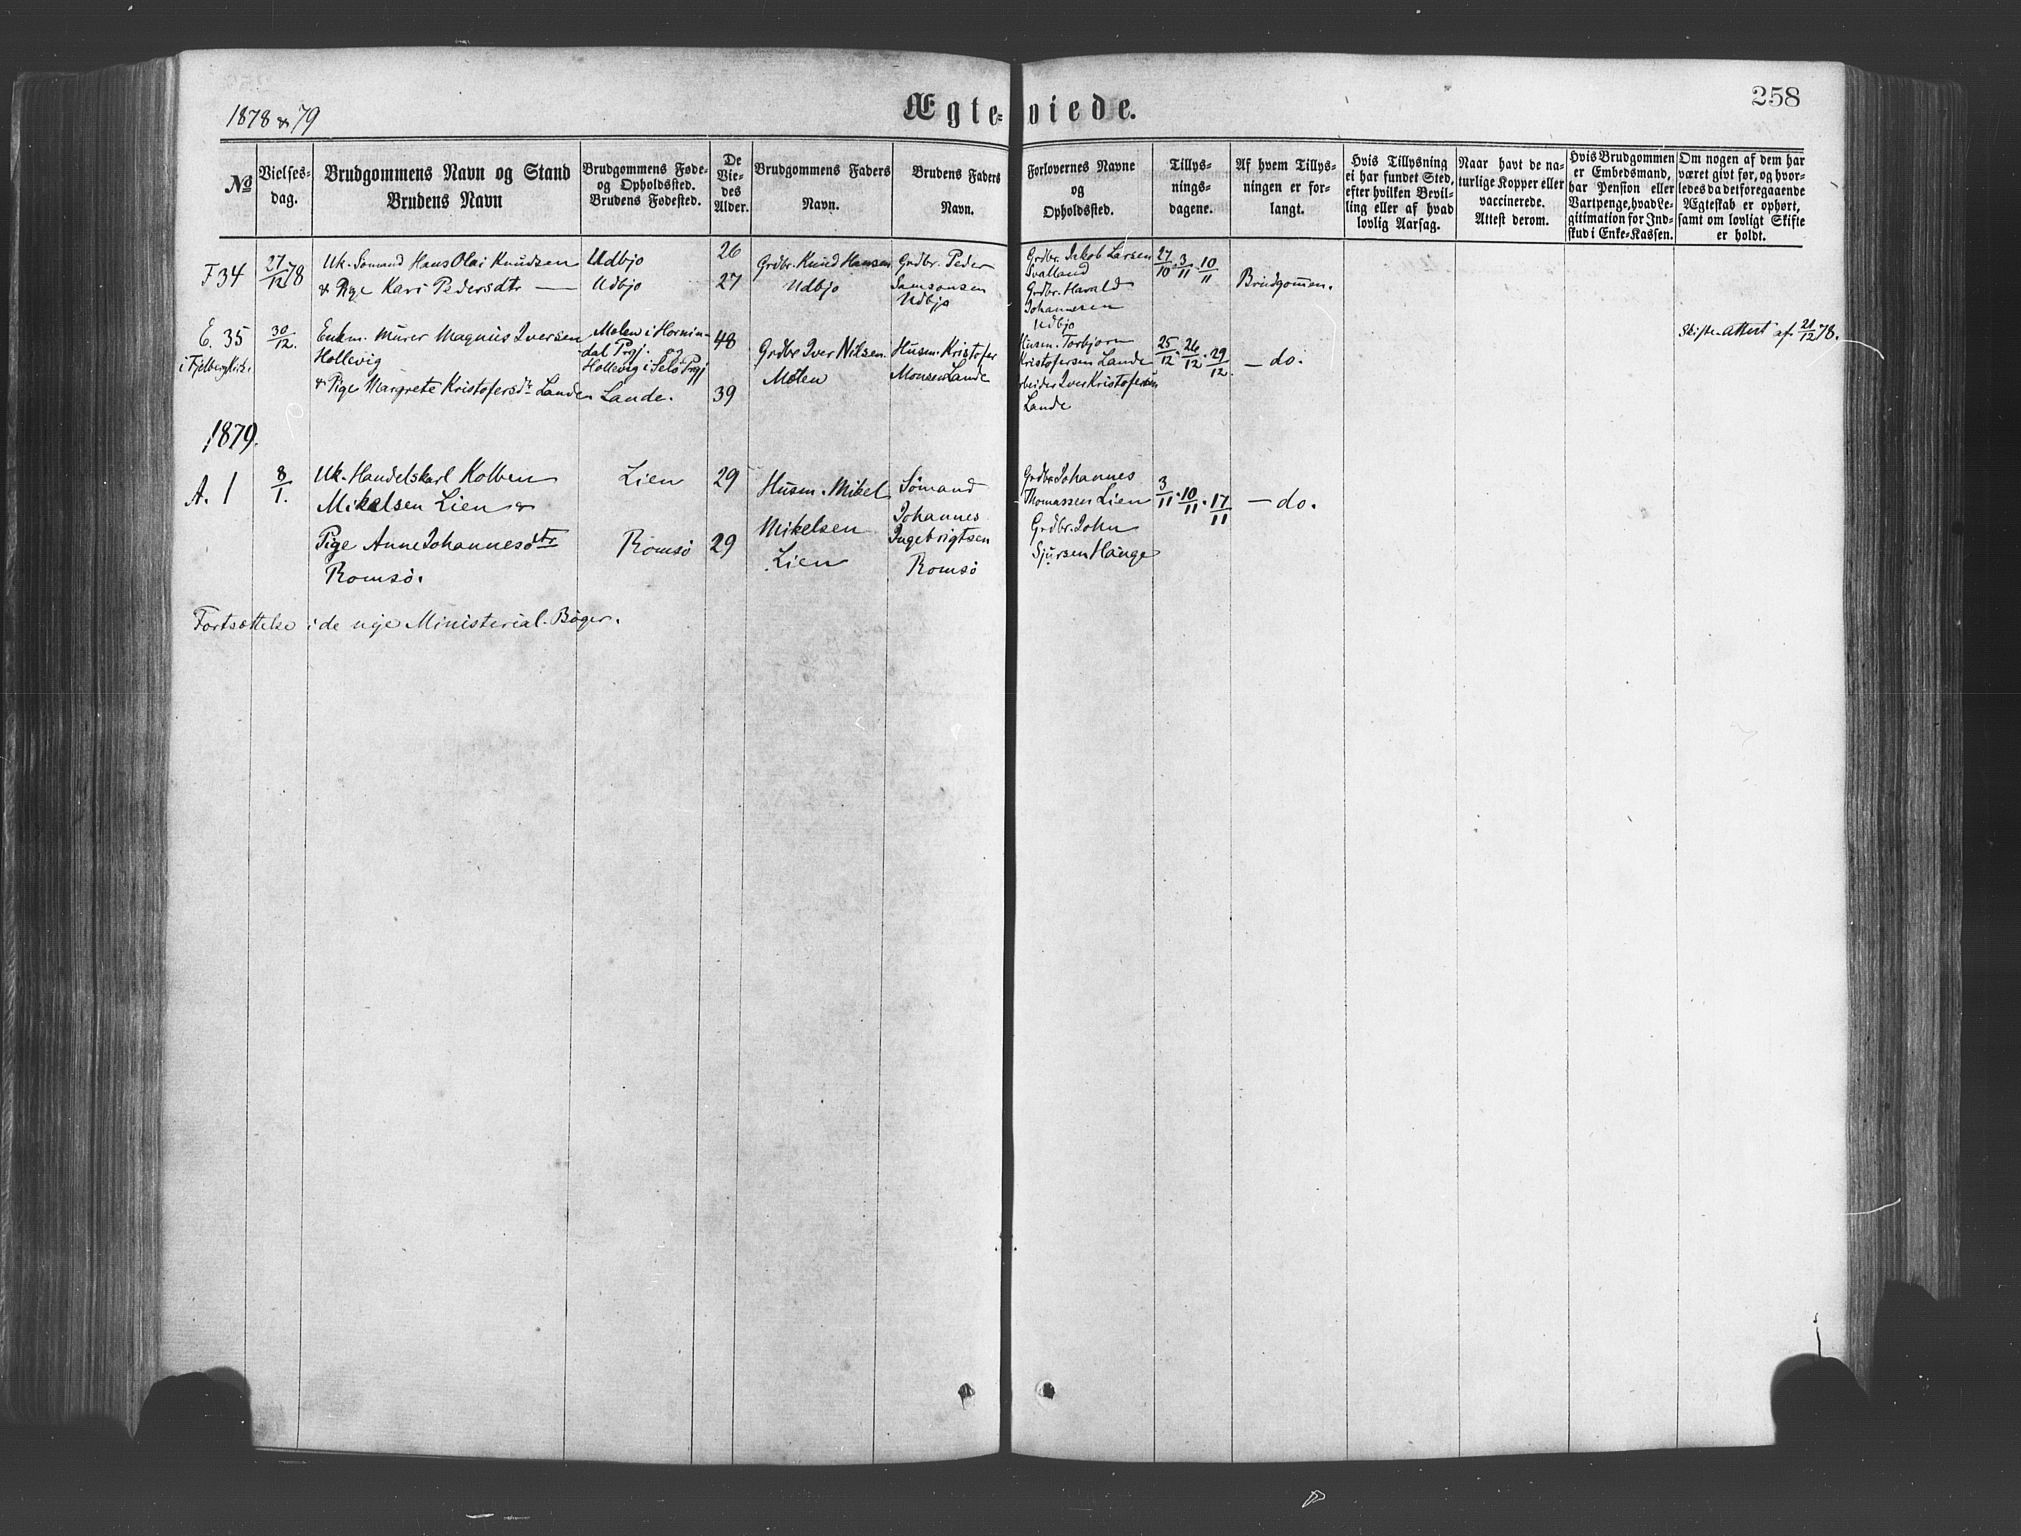 1878 & 79
Ægte-viede.
258
No
Vielses-
dag.
Brudgommens Navn og Stand
Brudens Navn
Brudgommens Føde-
og Opholdssted.
Brudens Fødested.
De
Vie-
des
Alder.
Brudgommens Faders
Navn.
Brudens Faders
Navn.
Forlovernes Navne
og
Opholdssted.
Tillys-
nings-
dagene.
Af hvem Tillys-
ningen er for-
langt.
Hvis Tillysning
ei har fundet Sted,
efter hvilken Bevil-
ling eller af hvad
lovlig Aarsag.
Naar havt de na-
turlige Kopper eller
vaccinerede.
Attest derom.
Hvis Brudgommen
er Embedsmand,
har Pension eller
Vartpenge, hvad Le-
gitimation for Ind-
skud i Enke-Kassen.
Om nogen af dem har
været givt før, og hvor-
ledes da det foregaaende
Ægteskab er ophørt,
samt om lovligt Skifte
er holdt.
F 34
27/12 78
Uk. Sømand Hans Olai Knudsen
& Pige Kari Pedersdtr —
Udbjo
Udbjo
26
27
Grdbr. Knud Hansen
Udbjo
Grdbr. Peder
Samsonsen
Udbjo
Grdbr. Jakob Larsen
Svalland
Grdbr. Harald
Johannesen
Udbjo
27/10. 3/11. 10/11
Brudgommen.
E. 35
i Fjelberg Kirk.
30/12.
Enkm. Murer Magnus Iversen
Hollevig
& Pige Margrete Kristofersdtr Lande
Molen i Hornin-
dal Prgj. og
Hollevig i Selø Prgj
Lande.
48
39
Grdbr Iver Nilsen
Molen
Husm. Kristofer
Monsen Lande
Husm. Torbjørn
Kristofersen Lande
Arbeider Iver Kristofersen
Lande
25/12. 26/12. 29/12.
— do.
Skifte-Attest af 21/12 78.
1879.
A. 1
8/1.
Uk. Handelskarl Kolben
Mikalsen Lien &
Pige Anne Johannesdtr
Romsø.
Lien
Romsø
29
29
Husm. Mikel
Mikelsen
Lien
Sømand
Johannes
Ingebrigtsen
Romsø
Grdbr. Johannes
Thomassen Lien
Grdbr. John
Sjursen Hauge
3/11. 10/11. 17/11
— do.
Fortsættelse i de nye Ministerial-Bøger.